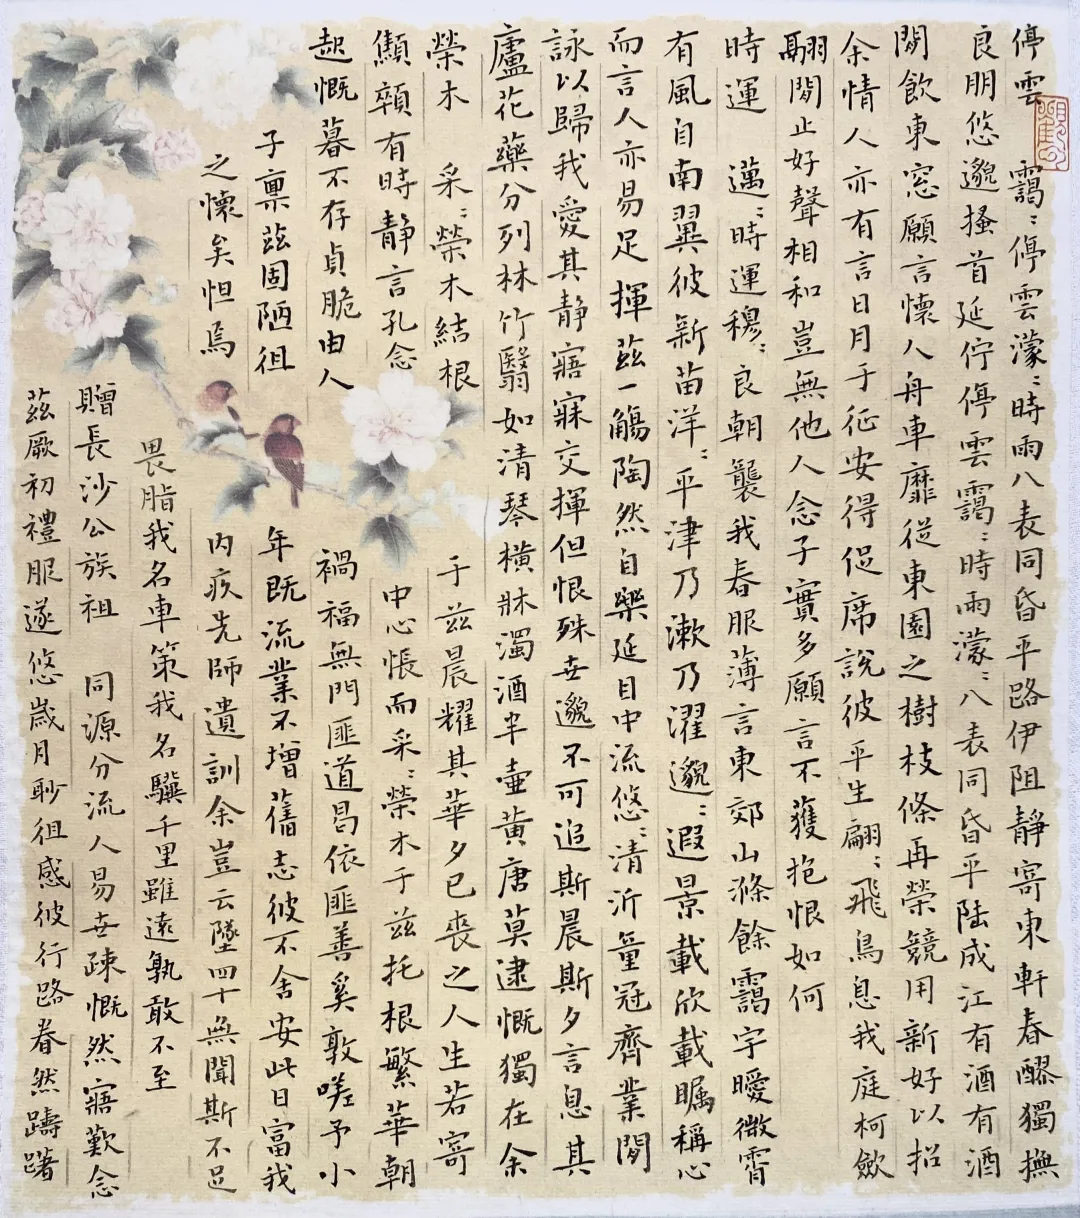 停雲　靄〻停雲濛〻時雨八表同昏平路伊阻靜寄東軒春醪獨撫
良朋悠邈搔首延佇停雲靄〻時雨濛〻八表同昏平陸成江有酒有酒
閒飲東窓願言懷人舟車靡從東園之樹枝條再榮競用新好以招
余情人亦有言日月于征安得促席說彼平生翩〻飛鳥息我庭柯斂
翮閒止好聲相和豈無他人念子實多願言不獲抱恨如何
時運　邁〻時運穆〻良朝襲我春服薄言東郊山滌餘靄宇曖微霄
有風自南翼彼新苗洋〻平津乃漱乃濯邈〻遐景載欣載矚稱心
而言人亦易足揮茲一觴陶然自樂延目中流悠〻清沂童冠齊業閒
詠以歸我愛其靜寤寐交揮但恨殊世邈不可追斯晨斯夕言息其
廬花藥分列林竹翳如清琴橫牀濁酒半壺黃唐莫逮慨獨在余
榮木　采〻榮木結根于茲晨耀其華夕已喪之人生若寄
顦顇有時靜言孔念中心悵而采〻榮木于茲托根繁華朝
起慨暮不存貞脆由人禍福無門匪道曷依匪善奚敦嗟予小
子稟茲固陋徂年既流業不增舊志彼不舍安此日富我
之懷矣怛焉內疚先師遺訓余豈云墜四十無聞斯不足
畏脂我名車策我名驥千里雖遠孰敢不至
贈長沙公族祖　同源分流人易世疎慨然寤歎念
茲厥初禮服遂悠歲月眇徂感彼行路眷然躊躇